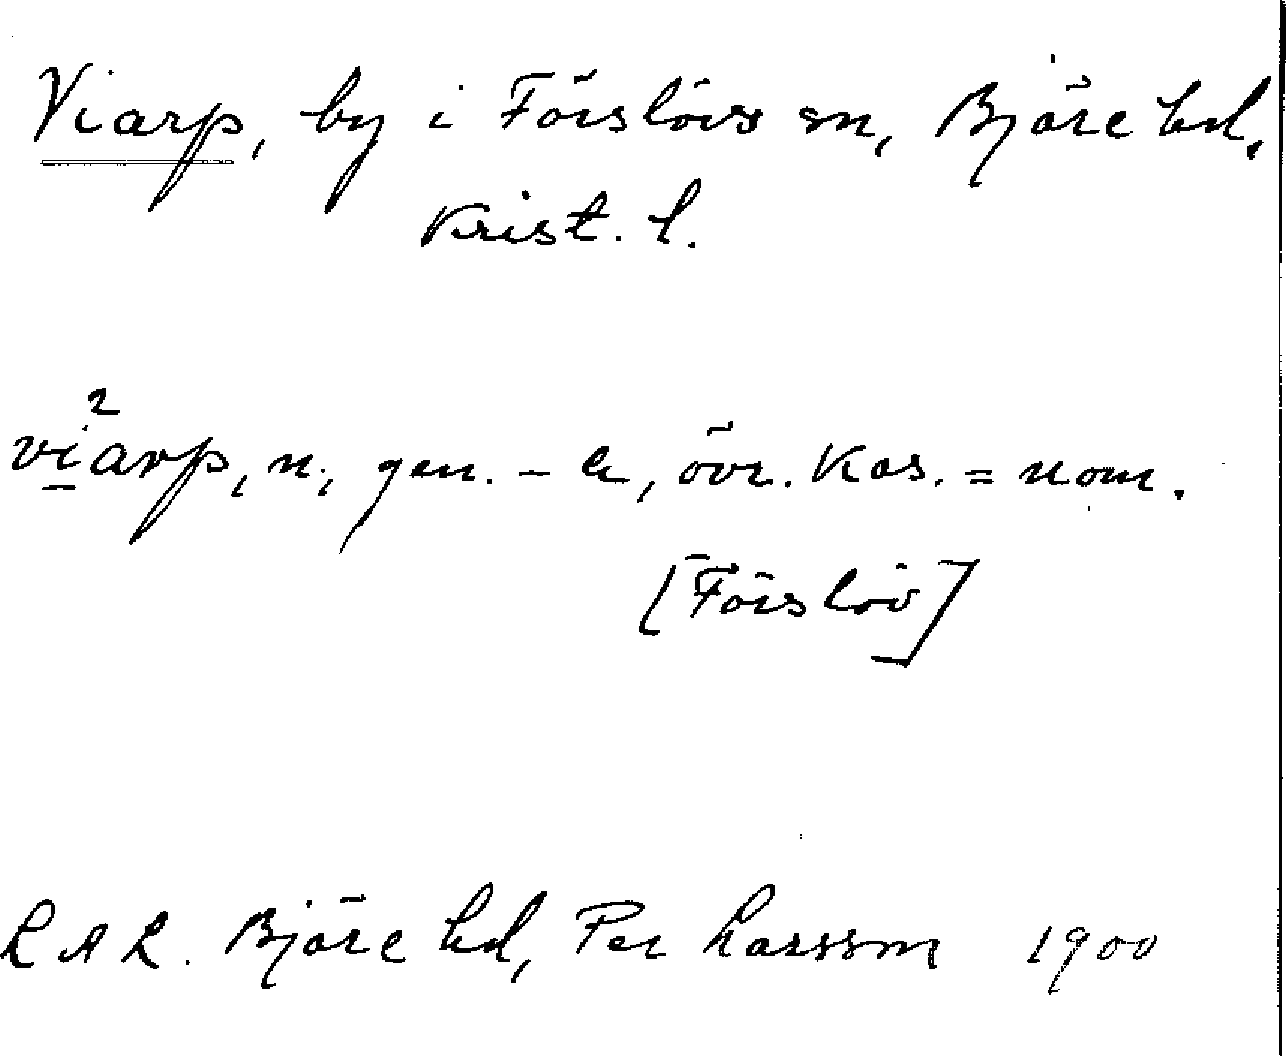 Viarp, by i Förslövs sn, Bjäre hd,
Krist. l.
vi²arp, n; gen. - e, övr. Kas. = nom.
[Förslöv]
L A L. Bjäre hd, Per Larsson 1900